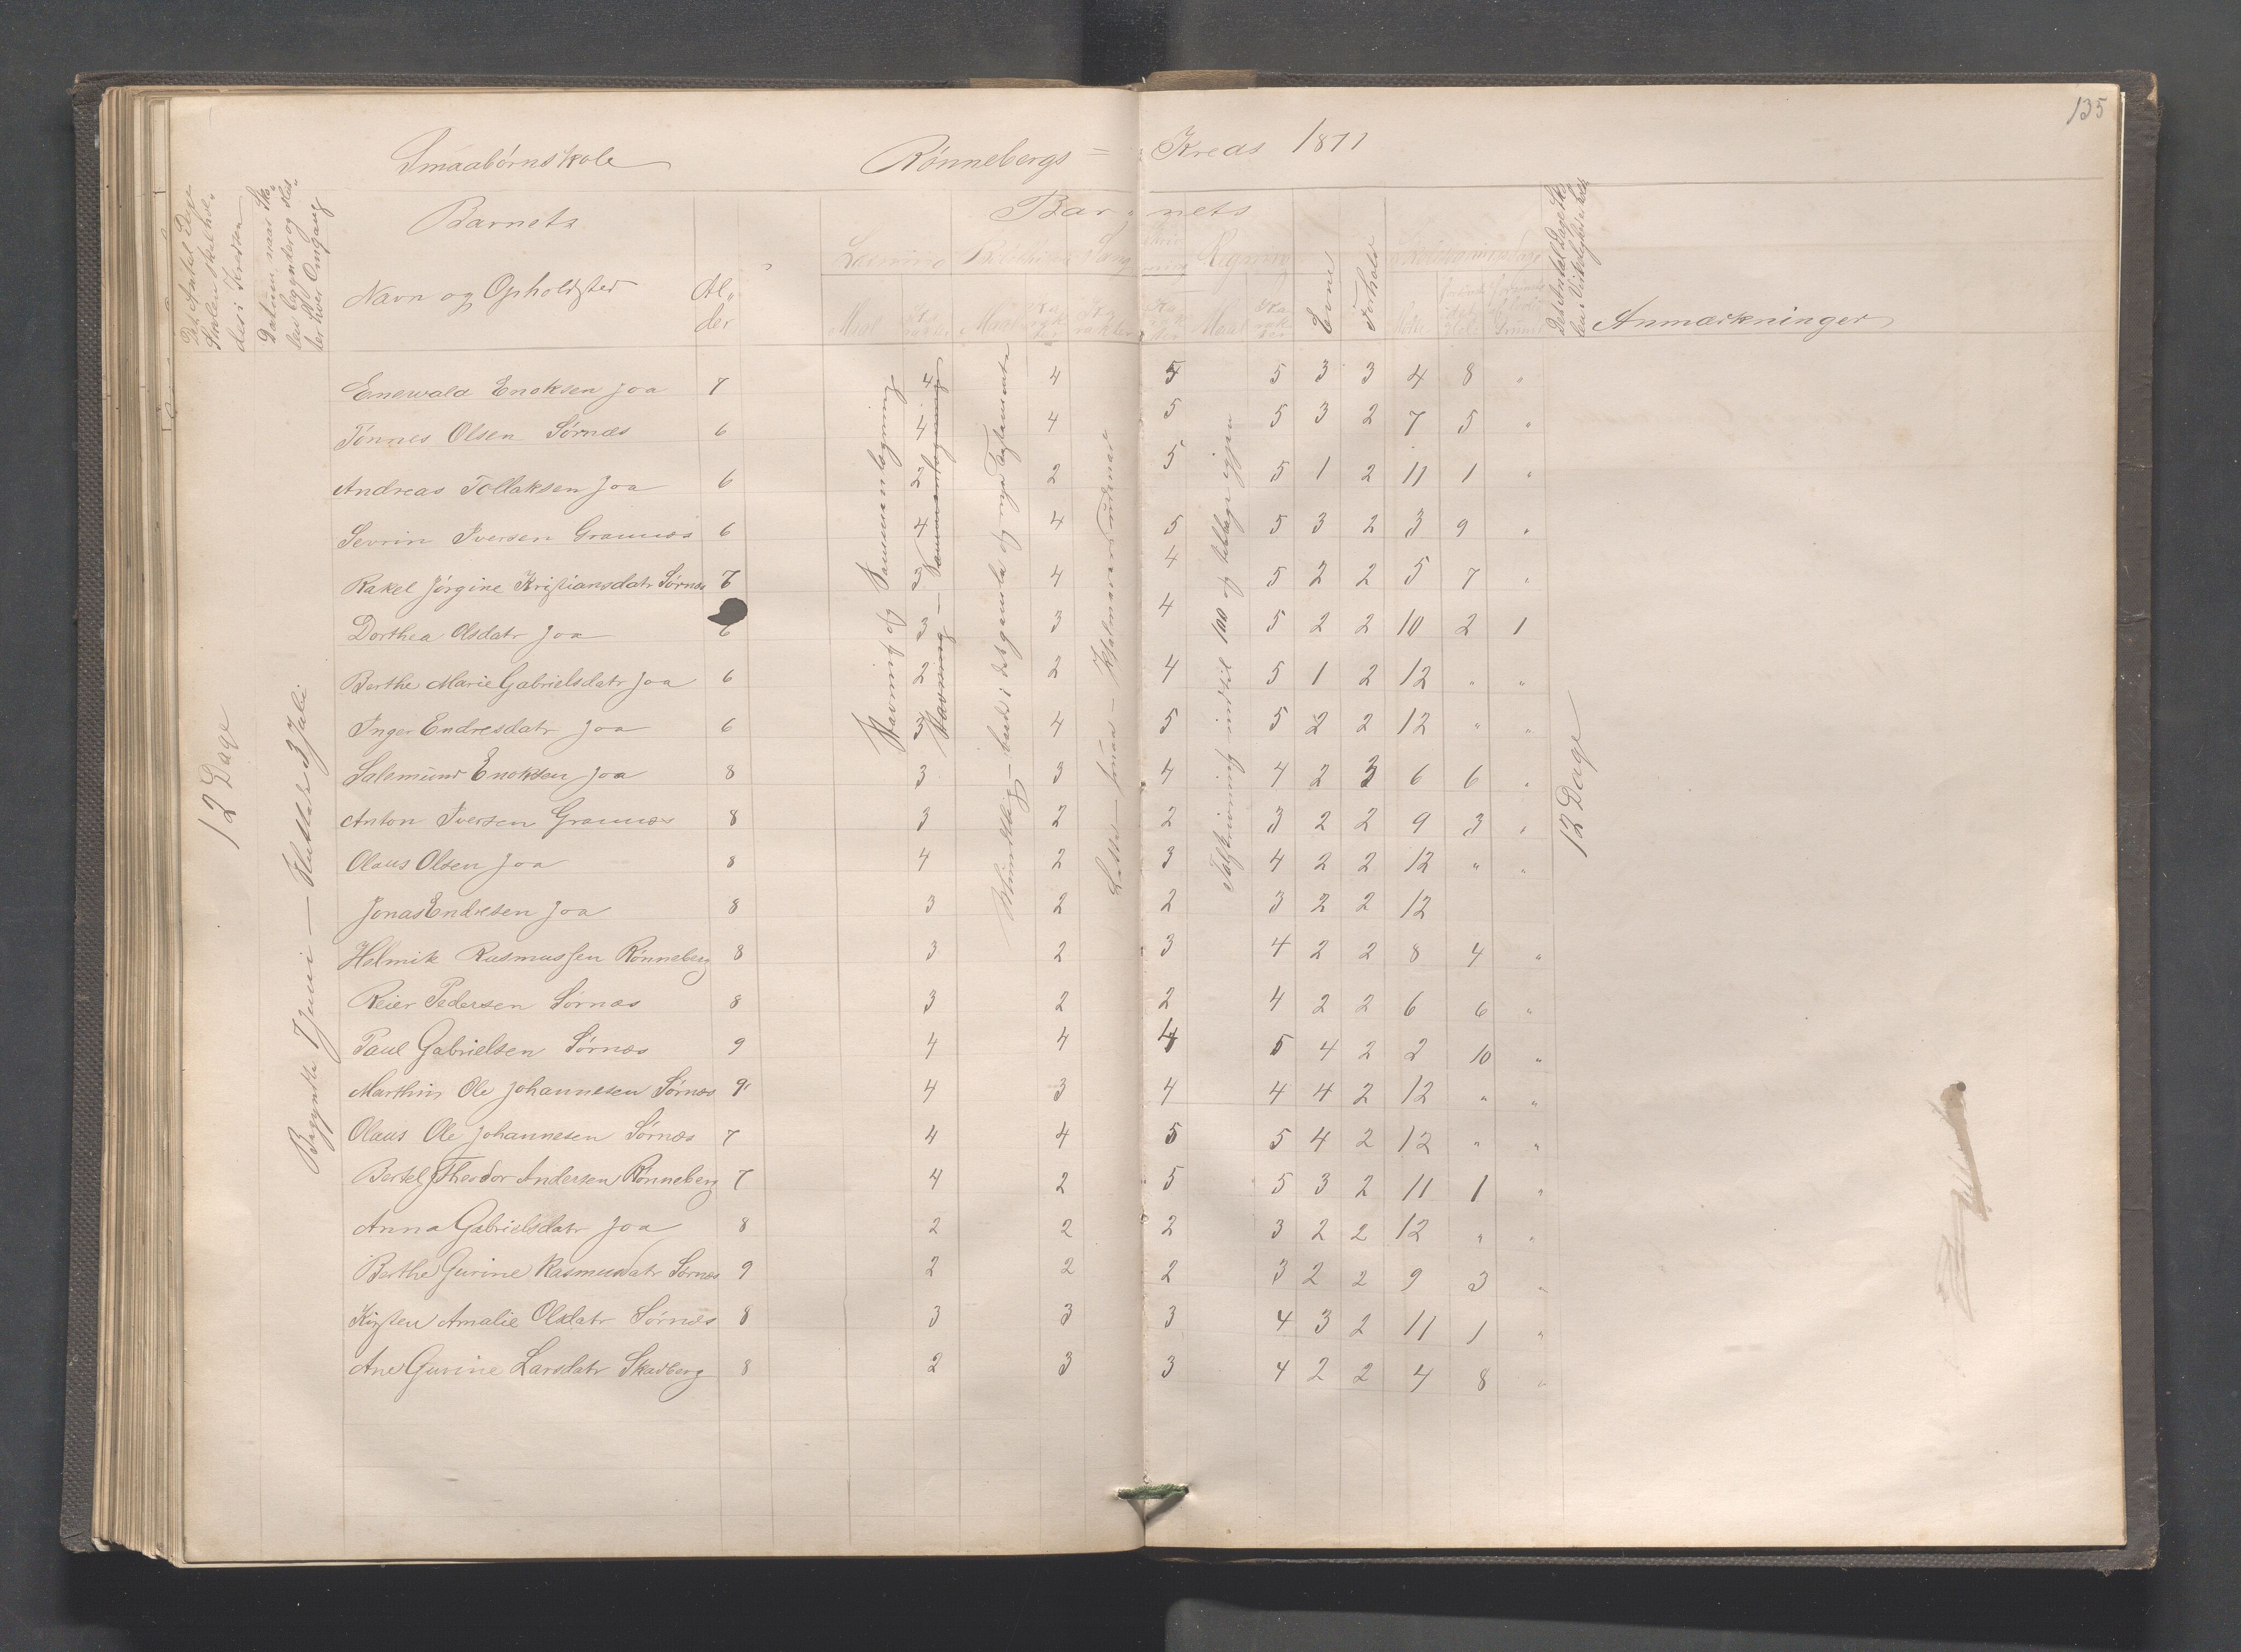 135
Smaabørnskole Rønnebergs = Kreds 1871
Det Antal Dage Skolen skal holdes i Kredsen
Datum, naar Skolen begynder og slutter hver Omgang
Barnets
Navn og Opholdsted
Alder
Barnets
Læsning
Maal
Karakter
Maal
Sang
Regning
Maal
Evne
Forhold
Anmærkninger
12 Dage
Begyndte 7 Juni — Sluttede 3 Juli
Stavning og Sammenlægning
Stavning — Sammenlægning
Talskrivning indtil 100 og tilbage igjen
12 Dage
Enewald Enoksen Joa 7 4 4 5 5 3 3 4 8 "
Tønnes Olsen Sørnæs 6 4 4 5 5 3 2 7 5 "
Andreas Tollaksen Joa 6 2 2 5 5 1 2 11 1 "
Sevrin Iversen Grannæs 6 4 4 5 5 3 2 3 9 "
Rakel Jørgine Kristiansdatr Sørnæs 4 4 5 2 2 5 7 "
Dorthea Olsdatr Joa 3 3 4 5 2 2 10 2 1
Berthe Marie Gabrielsdatr Joa 6 2 2 4 5 1 2 12 " "
Inger Endresdatr Joa 6 4 5 5 2 2 12 " "
Salemund Enoksen Joa 8 3 3 4 4 2 3 6 6 "
Anton Iversen Grannæs 8 3 2 2 3 2 2 9 3 "
Olaus Olsen Joa 8 4 2 3 4 2 2 12 " "
Jonas Endresen Joa 8 3 2 2 3 2 2 12
Helmik Rasmussen Rønneberg 8 3 2 3 4 2 2 8 4 "
Reier Pedersen Sørnæs 8 3 2 2 4 2 2 6 6 "
Paul Gabrielsen Sørnæs 9 4 4 4 5 4 2 2 10 "
Marthin Ole Johannesen Sørnæs 9 4 3 4 4 4 2 12 " "
Olaus Ole Johannesen Sørnæs 7 4 4 5 5 4 2 12 " "
Bertel Theodor Andersen Rønneberg 7 4 2 5 5 3 2 11 1 "
Anna Gabrielsdatr Joa 8 2 2 2 3 2 2 12 " "
Berthe Gurine Rasmusdatr Sørnæs 9 2 2 2 3 2 2 9 3 "
Kirsten Amalie Olsdatr Sørnæs 8 3 3 3 4 3 2 11 1 "
Ane Gurine Larsdatr Skadberg 8 2 3 3 4 2 2 4 8 "